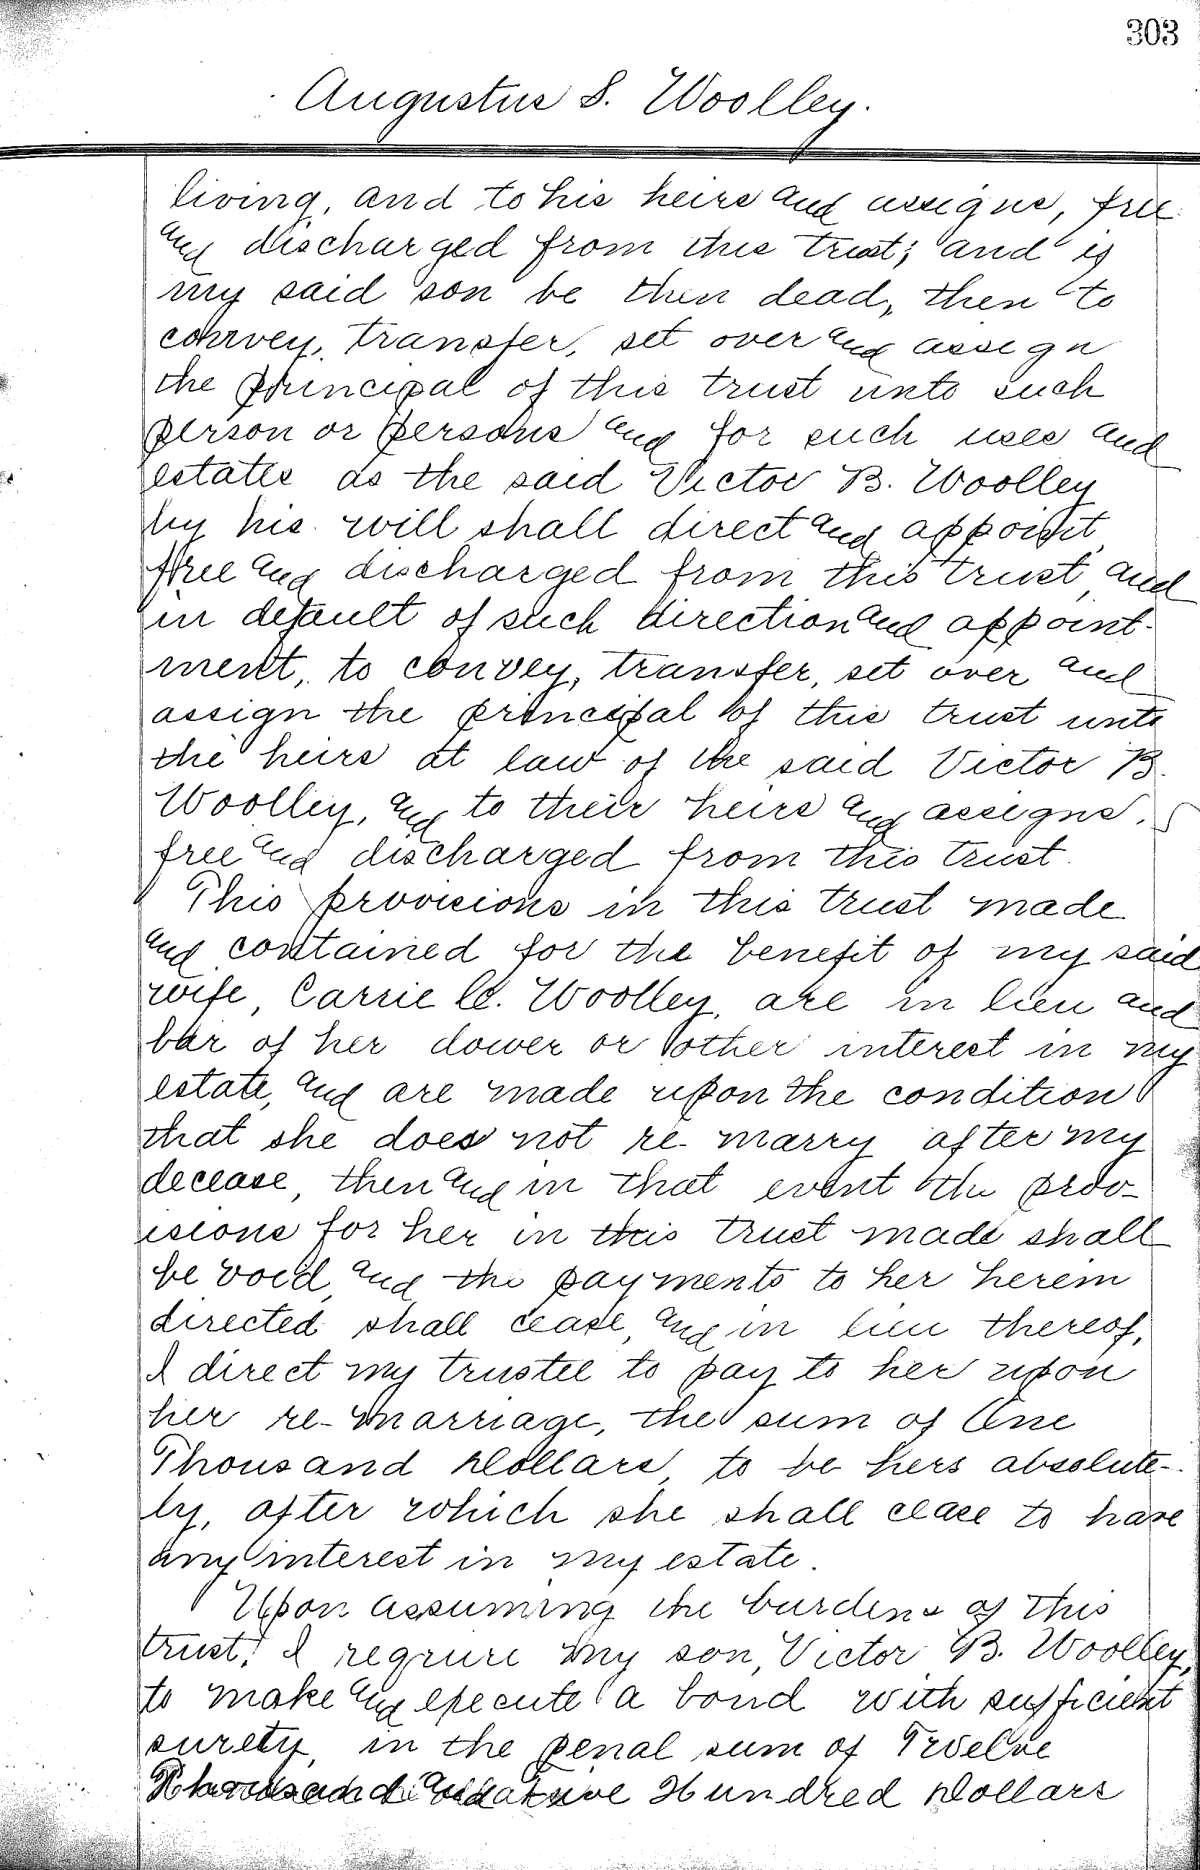 303
Augustus S. Woolley.
living, and to his heirs and assigns, free
and discharged from this trust; and if
my said son be then dead, then to
convey, transfer, set over and assign
the principal of this trust unto such
person or persons and for such uses and
estates as the said Victor B. Woolley
by his will shall direct and appoint,
free and discharged from this trust, and
in default of such direction and appoint-
ment, to convey, transfer, set over and
assign the principal of this trust unto
the heirs at law of the said Victor B.
Woolley, and to their heirs and assigns,
free and discharged from this trust.
This provisions in this trust made
and contained for the benefit of my said
wife, Carrie C. Woolley, are in lieu and
bar of her dower or other interest in my
estate, and are made upon the condition
that she does not re-marry after my
decease, then and in that event the prov-
isions for her in this trust made shall
be void, and the payments to her herein
directed shall cease, and in lieu thereof,
I direct my trustee to pay to her upon
her re-marriage, the sum of One
Thousand Dollars, to be hers absolute-
ly, after which she shall cease to have
any interest in my estate.
Upon assuming the burdens of this
trust, I require my son, Victor B. Woolley,
to make and execute a bond with sufficient
surety, in the penal sum of Twelve
Hundred Dollars